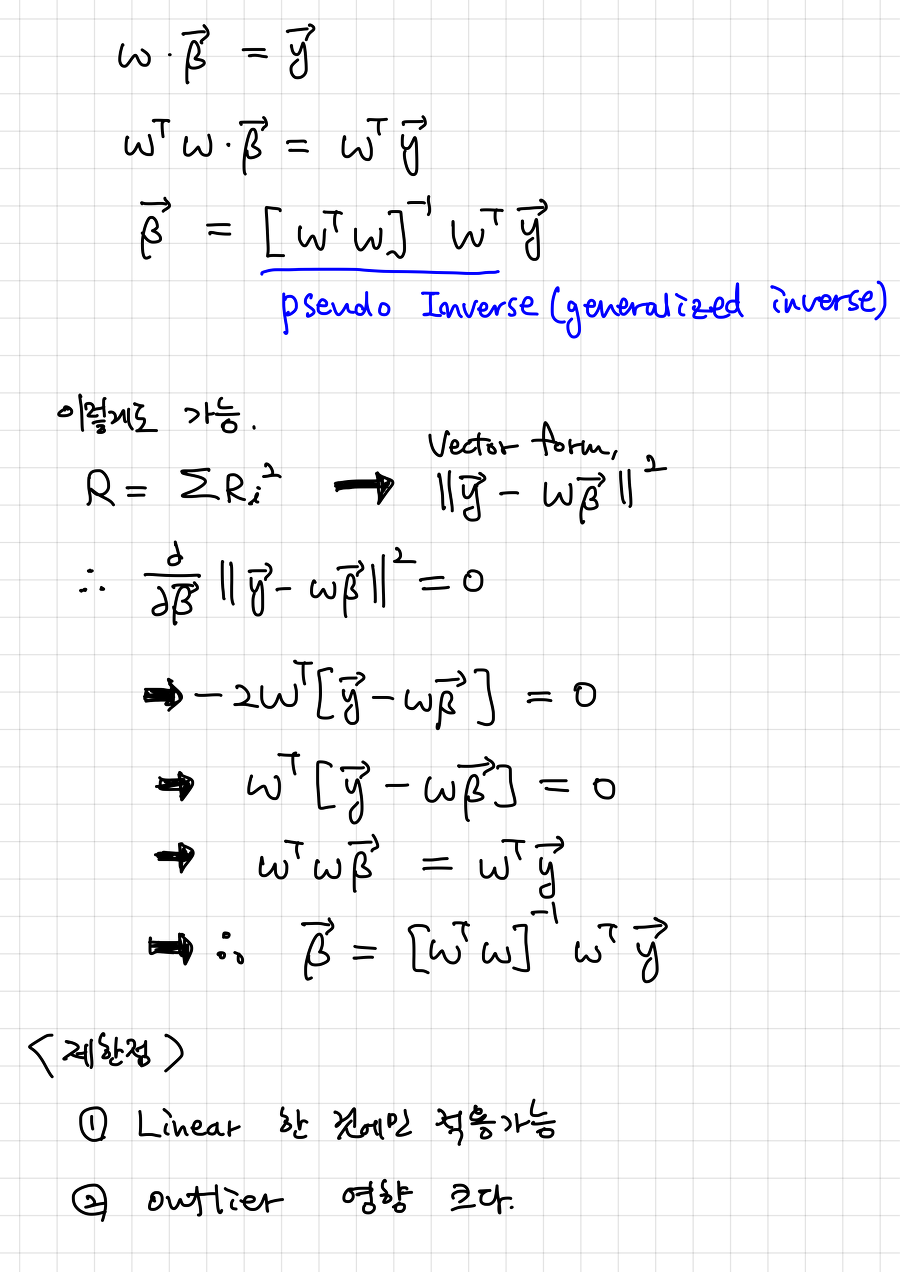 ω · β⃗ = y⃗
ωᵀ ω · β⃗ = ωᵀ y⃗
β⃗ = [ωᵀ ω]⁻¹ ωᵀ y⃗
pseudo Inverse (generalized inverse)
이렇게도 가능.
Vector form,
R = ΣRᵢ² → ‖y⃗ - ωβ⃗‖²
∴ ∂/∂β⃗ ‖y⃗ - ωβ⃗‖² = 0
→ -2ωᵀ[y⃗ - ωβ⃗] = 0
→ ωᵀ[y⃗ - ωβ⃗] = 0
→ ωᵀωβ⃗ = ωᵀy⃗
→ ∴ β⃗ = [ωᵀω]⁻¹ ωᵀ y⃗
<제한점>
① Linear 한 것에만 적용가능
② outlier 영향 크다.